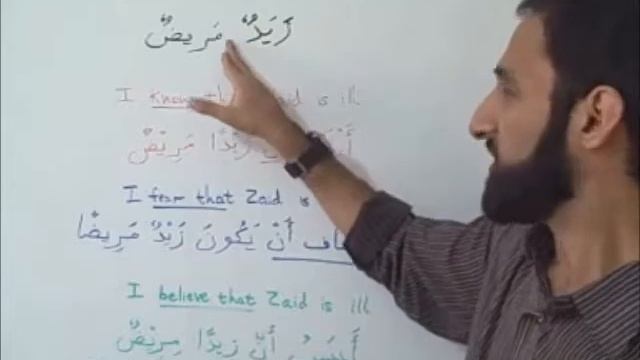 زَيْدٌ مَرِيضٌ
I know that Zaid is ill
زَيْدًا مَرِيْضٌ
I fear that Zaid is
أَنْ يَكُونَ زَيْدٌ مَرِيضًا
I believe that Zaid is ill
أَنَّ زيدًا مَرِيْضٌ